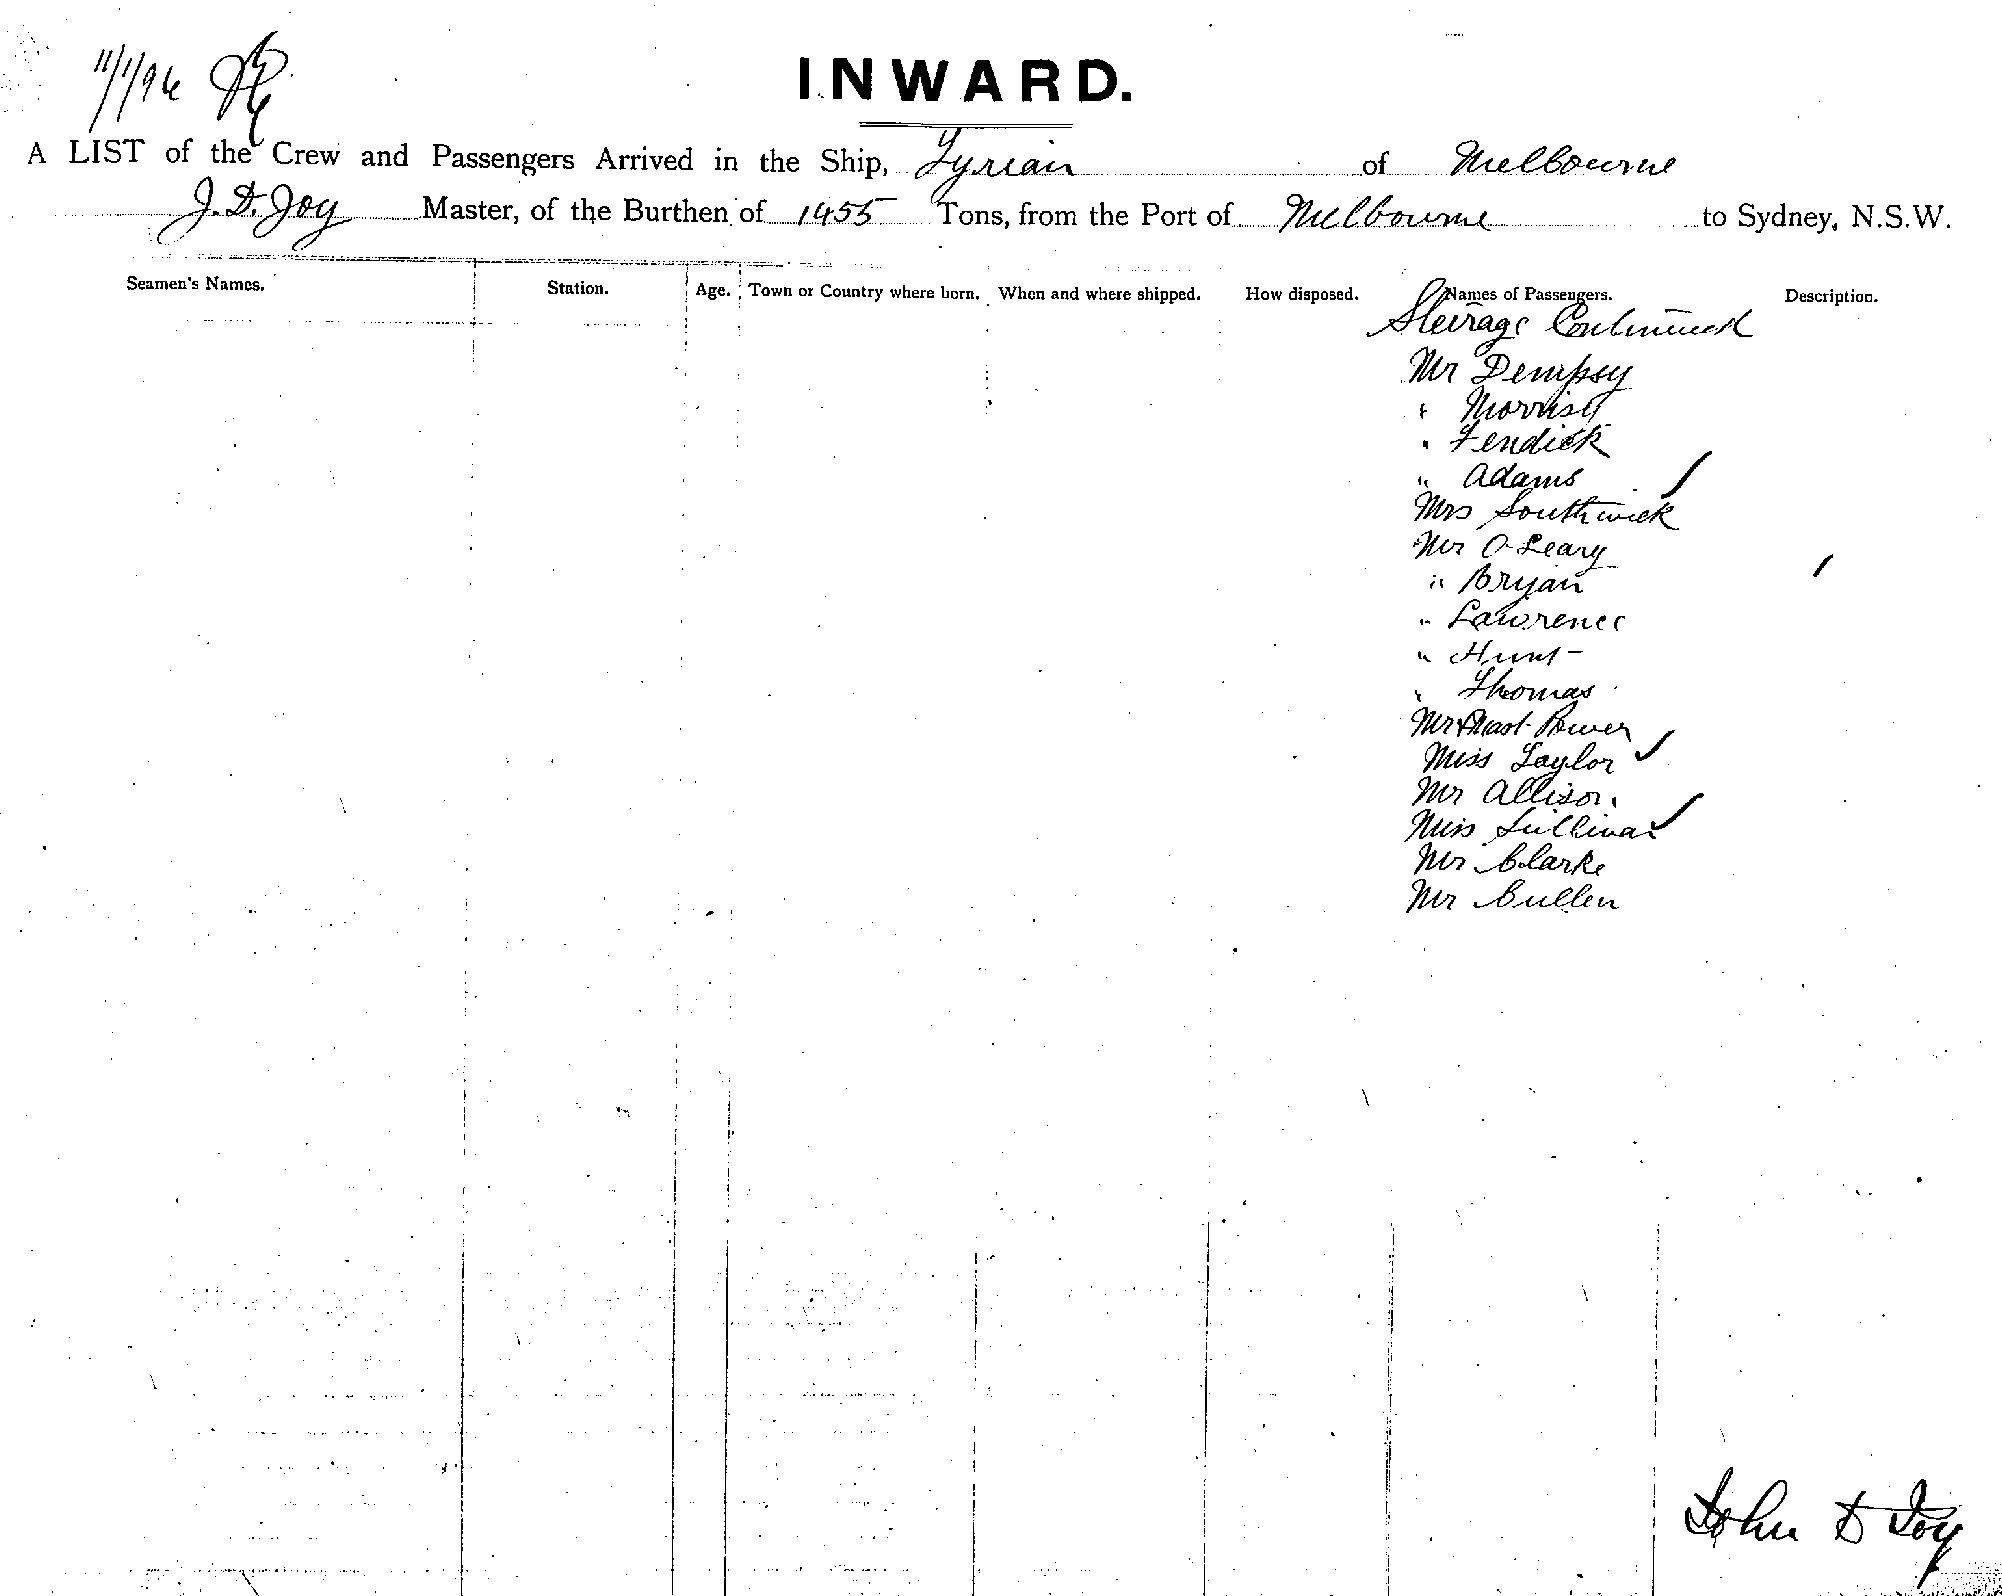 11/1/96
INWARD.
A LIST of the Crew and Passengers Arrived in the Ship, Tyrian of Melbourne
J. D. Joy Master, of the Burthen of 1455 Tons, from the Port of Melbourne to Sydney, N.S.W.
Seamen's Names. Station. Age. Town or Country where born. When and where shipped. How disposed. Names of Passengers. Description.
Steirage Continued
Mr Dempsy
" Morrisy
" Fendick
" Adams
Mrs Southwick
Mr O Leary
" Bryan
" Lawrence
" Hunt
" Thomas
Mr & Mast Power
Miss Taylor
Mr Allison
Miss Sullivan
Mr Clarke
Mr Cullen
John D Joy